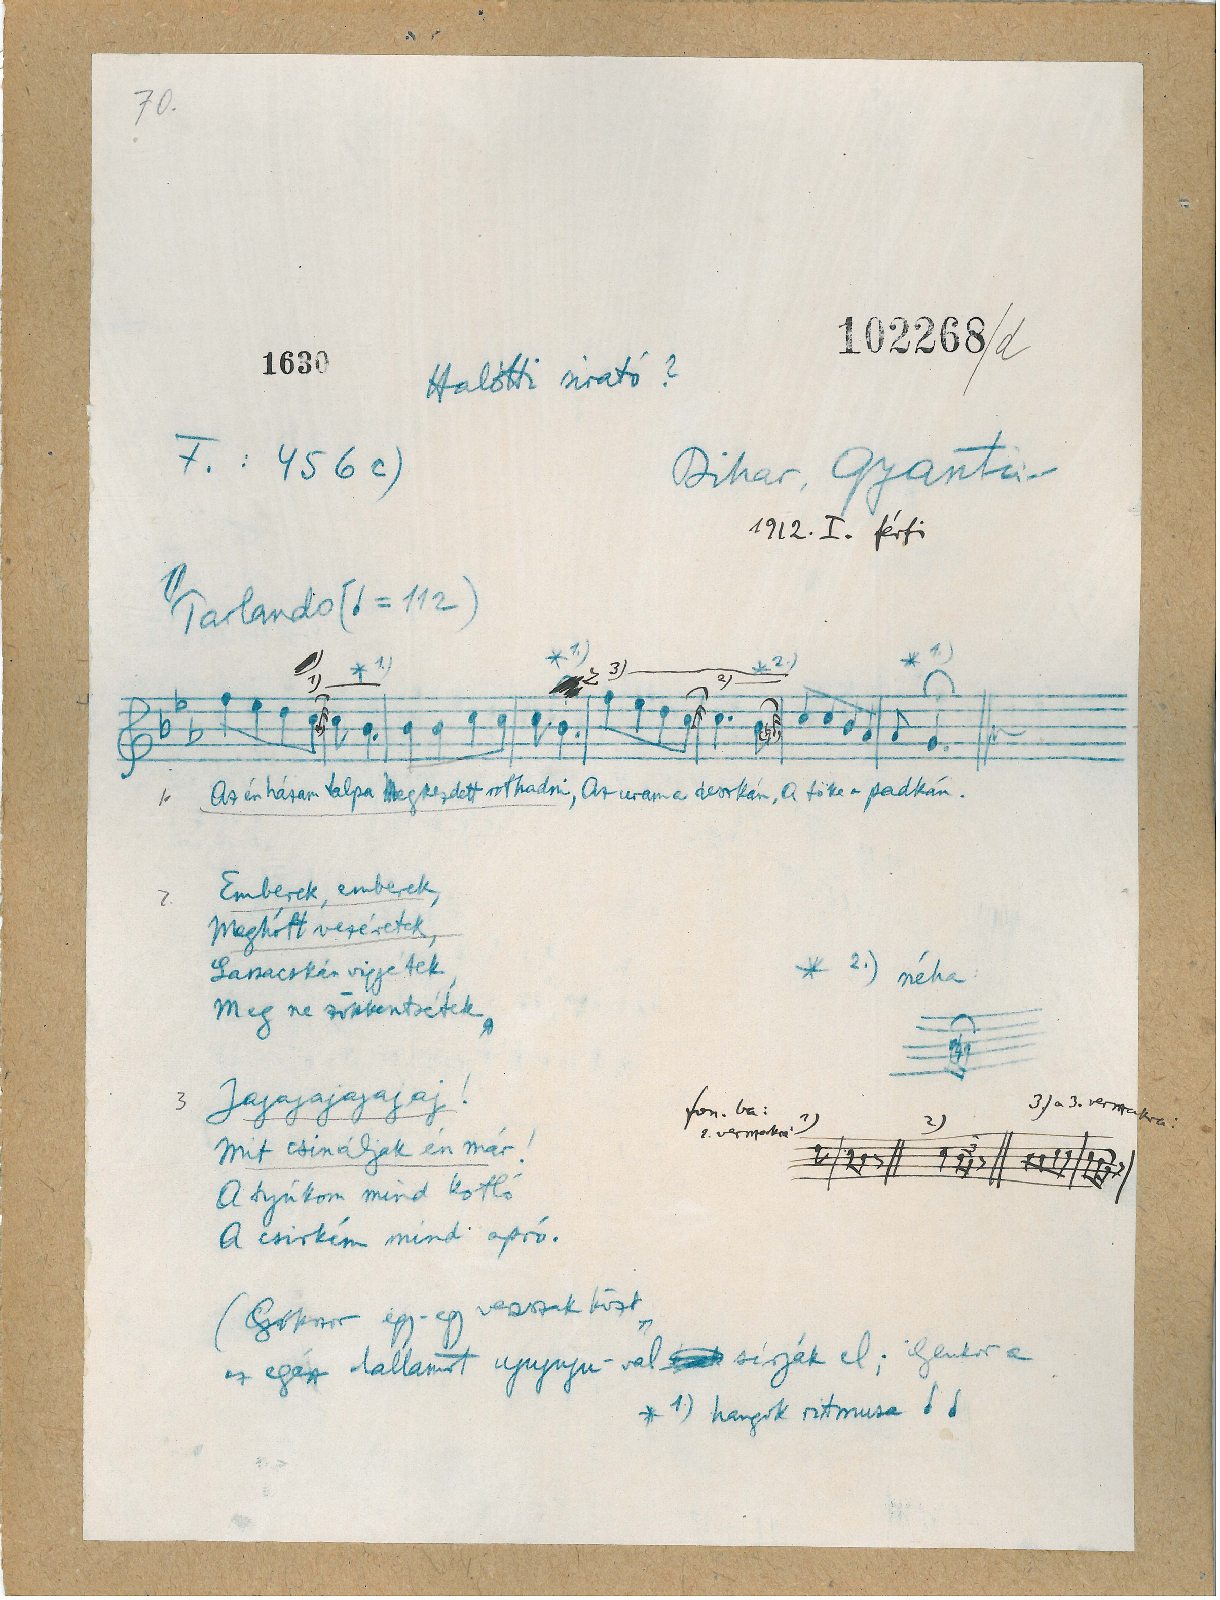 70.
102268/d
1630
Halotti sirató?
F.: 456c)
Bihar, Gyanta
1912. I. férfi
1) Parlando (♩ = 112)
1) * 1.) * 1.) 2 3) 2) * 2.) * 1.)
1. Az én házam talpa Megkezdett rothadni, Az uram a deszkán, A tőke a padkán.
2. Emberek, emberek,
Meghótt vezéretek,
Lassacskán vigyétek,
Meg ne zökkentsétek,
* 2.) néha
3 Jajajajajajaj!
Mit csináljak én már!
A tyúkom mind kotló
A csirkém mind apró.
fon. ba:
2. versszakra: 1) 2) 3) a 3. versszakra:
(Gyakran egy-egy versszak közt
az egész dallamot ujujuju-val sírják el; ilyenkor a
* 1) hangok ritmusa ♩ ♩